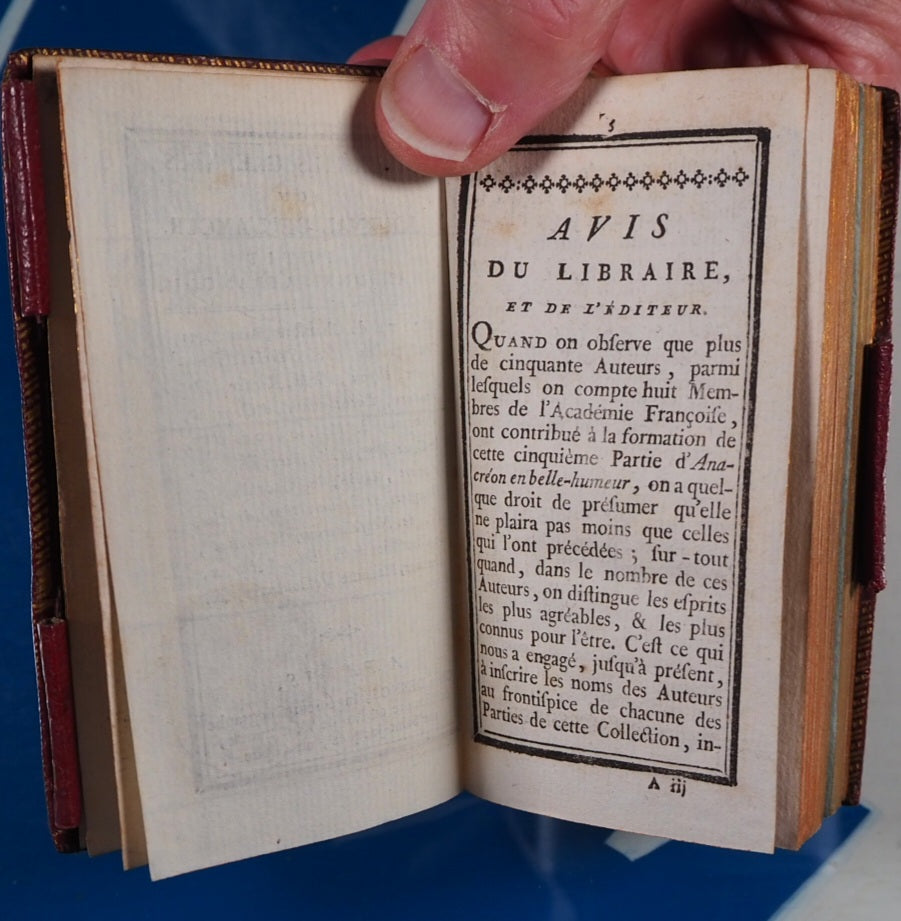 5
AVIS
DU LIBRAIRE,
ET DE L'ÉDITEUR.
QUAND on obſerve que plus
de cinquante Auteurs, parmi
leſquels on compte huit Mem-
bres de l'Académie Françoiſe,
ont contribué à la formation de
cette cinquième Partie d'Ana-
créon en belle-humeur, on a quel-
que droit de préſumer qu'elle
ne plaira pas moins que celles
qui l'ont précédées ; ſur-tout
quand, dans le nombre de ces
Auteurs, on diſtingue les eſprits
les plus agréables, & les plus
connus pour l'être. C'eſt ce qui
nous a engagé, juſqu'à préſent,
à inſcrire les noms des Auteurs
au frontiſpice de chacune des
Parties de cette Collection, in-
A iij